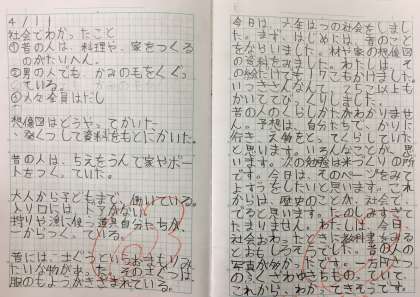 4/11
社会でわかったこと
①昔の人は、料理や、家をつくる
のがたいへん。
②男の人でも、かみのもをくくっ
ている。
③人々全員はだし
想像図はどうやってかいた
、発くつして資料をもとにかいた。
昔の人は、ちえをうんで家やボー
トをつくっていた。
大人から子どもまで、働いている。
入り口には、ドアがない
狩りや漁に使う道具自分たちが、
からつくっている。
昔には、土ぐうというおまもりみ
たいな物があった。その土ぐうは、
服のもようがきざまれている。
今日は、六年はつの社会をしまし
た。まず、はじめには、昔のこと
をならいました。村や家の想像図
の資料をみました。わたしは、そ
の絵だけでもりこもかけました。
いっきさんなんて、2ちこ以上も
かいててびっくりしました。
昔の人のくらしかたがわかりませ
ん。予想は、自分たちで、かりに
行き、えものをとってくらしていた
と思います。いろんなことが、
います。次の勉強は米づくりの所
です。今日は、そのページをみて
よそうをしたいと思います。これ
からは、歴史のことが、社会で、
でると思います。たのしみすぎて
たまりません。わたしは、今日、
社会おわったときに教科書をみる
とおもしろそうでした。昔の人の
写真が分かったです。一万円さつ
の、ふくざわゆきちものっていて
これからが、たのしそうです。